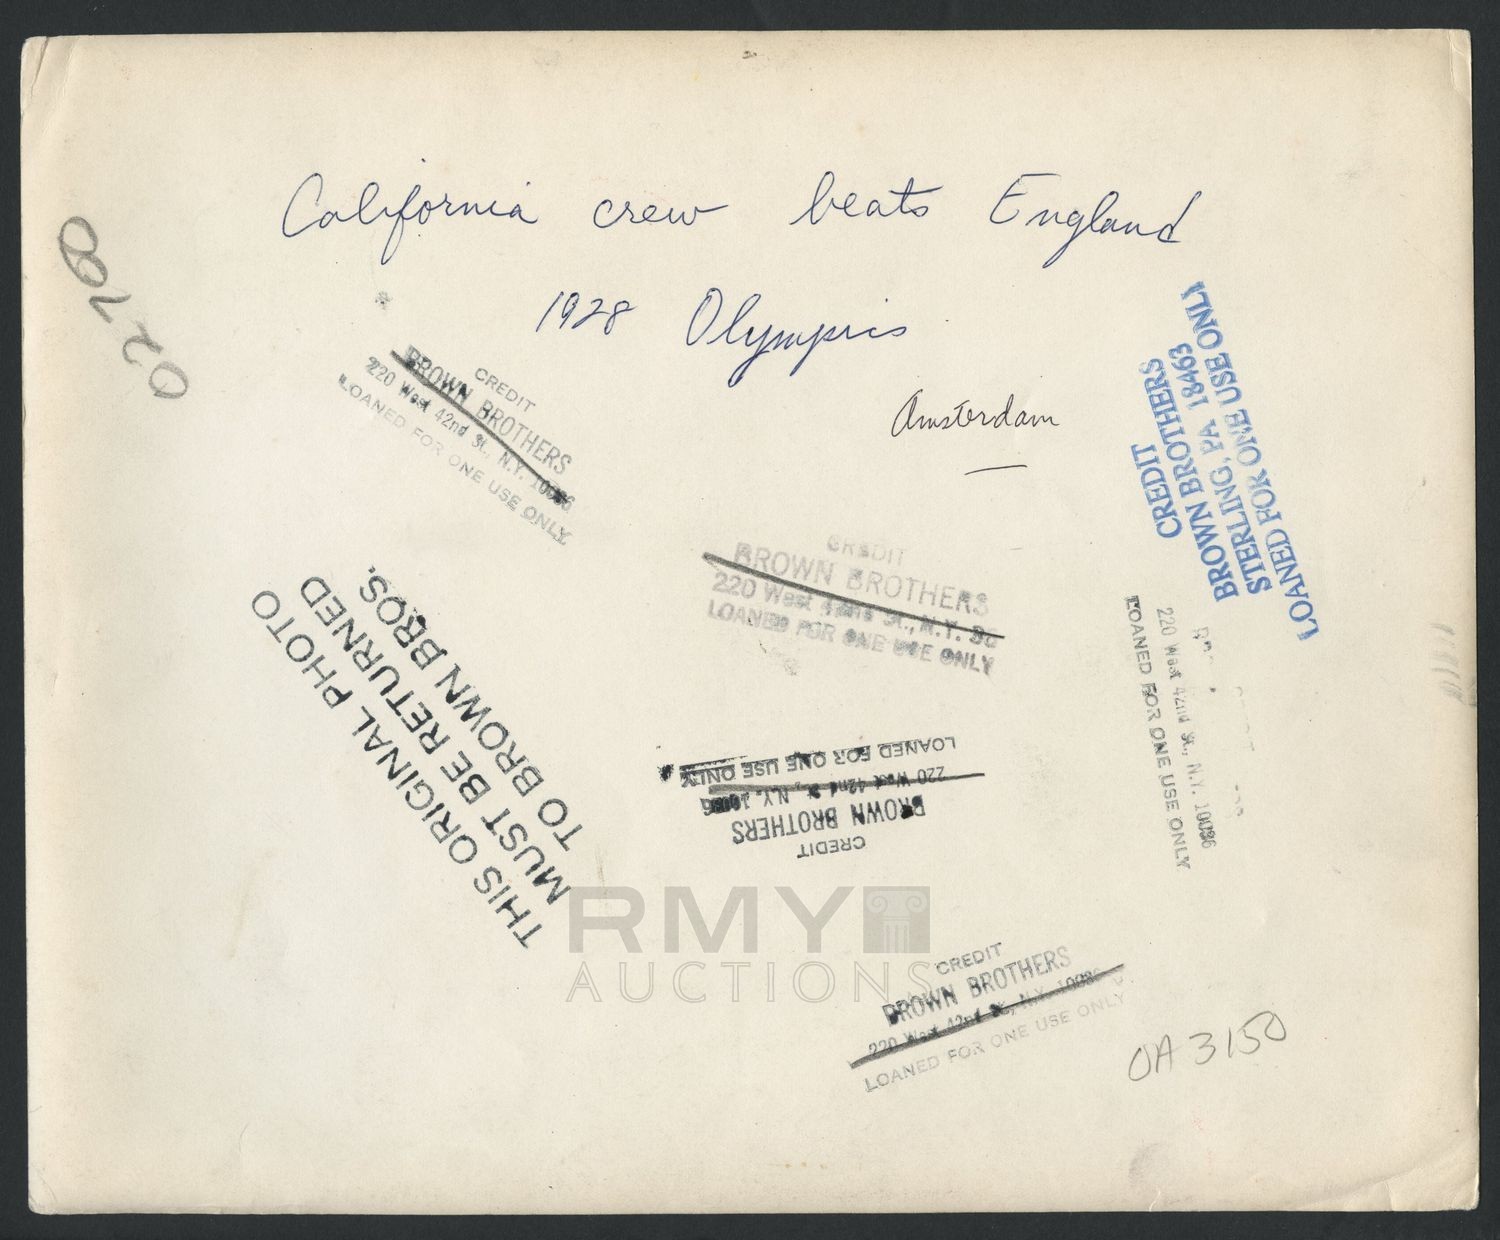 California crew beats England
1928 Olympics
Amsterdam
02700
CREDIT
BROWN BROTHERS
220 West 42nd St., N.Y. 10036
LOANED FOR ONE USE ONLY
CREDIT
BROWN BROTHERS
STERLING, PA. 18463
LOANED FOR ONE USE ONLY
CREDIT
BROWN BROTHERS
220 West 42nd St., N.Y. 36
LOANED FOR ONE USE ONLY
THIS ORIGINAL PHOTO
MUST BE RETURNED
TO BROWN BROS.
220 West 42nd St., N.Y. 10036
LOANED FOR ONE USE ONLY
CREDIT
BROWN BROTHERS
220 West 42nd St., N.Y. 10036
LOANED FOR ONE USE ONLY
RMY
AUCTIONS
CREDIT
BROWN BROTHERS
220 West 42nd St., N.Y. 10036
LOANED FOR ONE USE ONLY
OA 3150